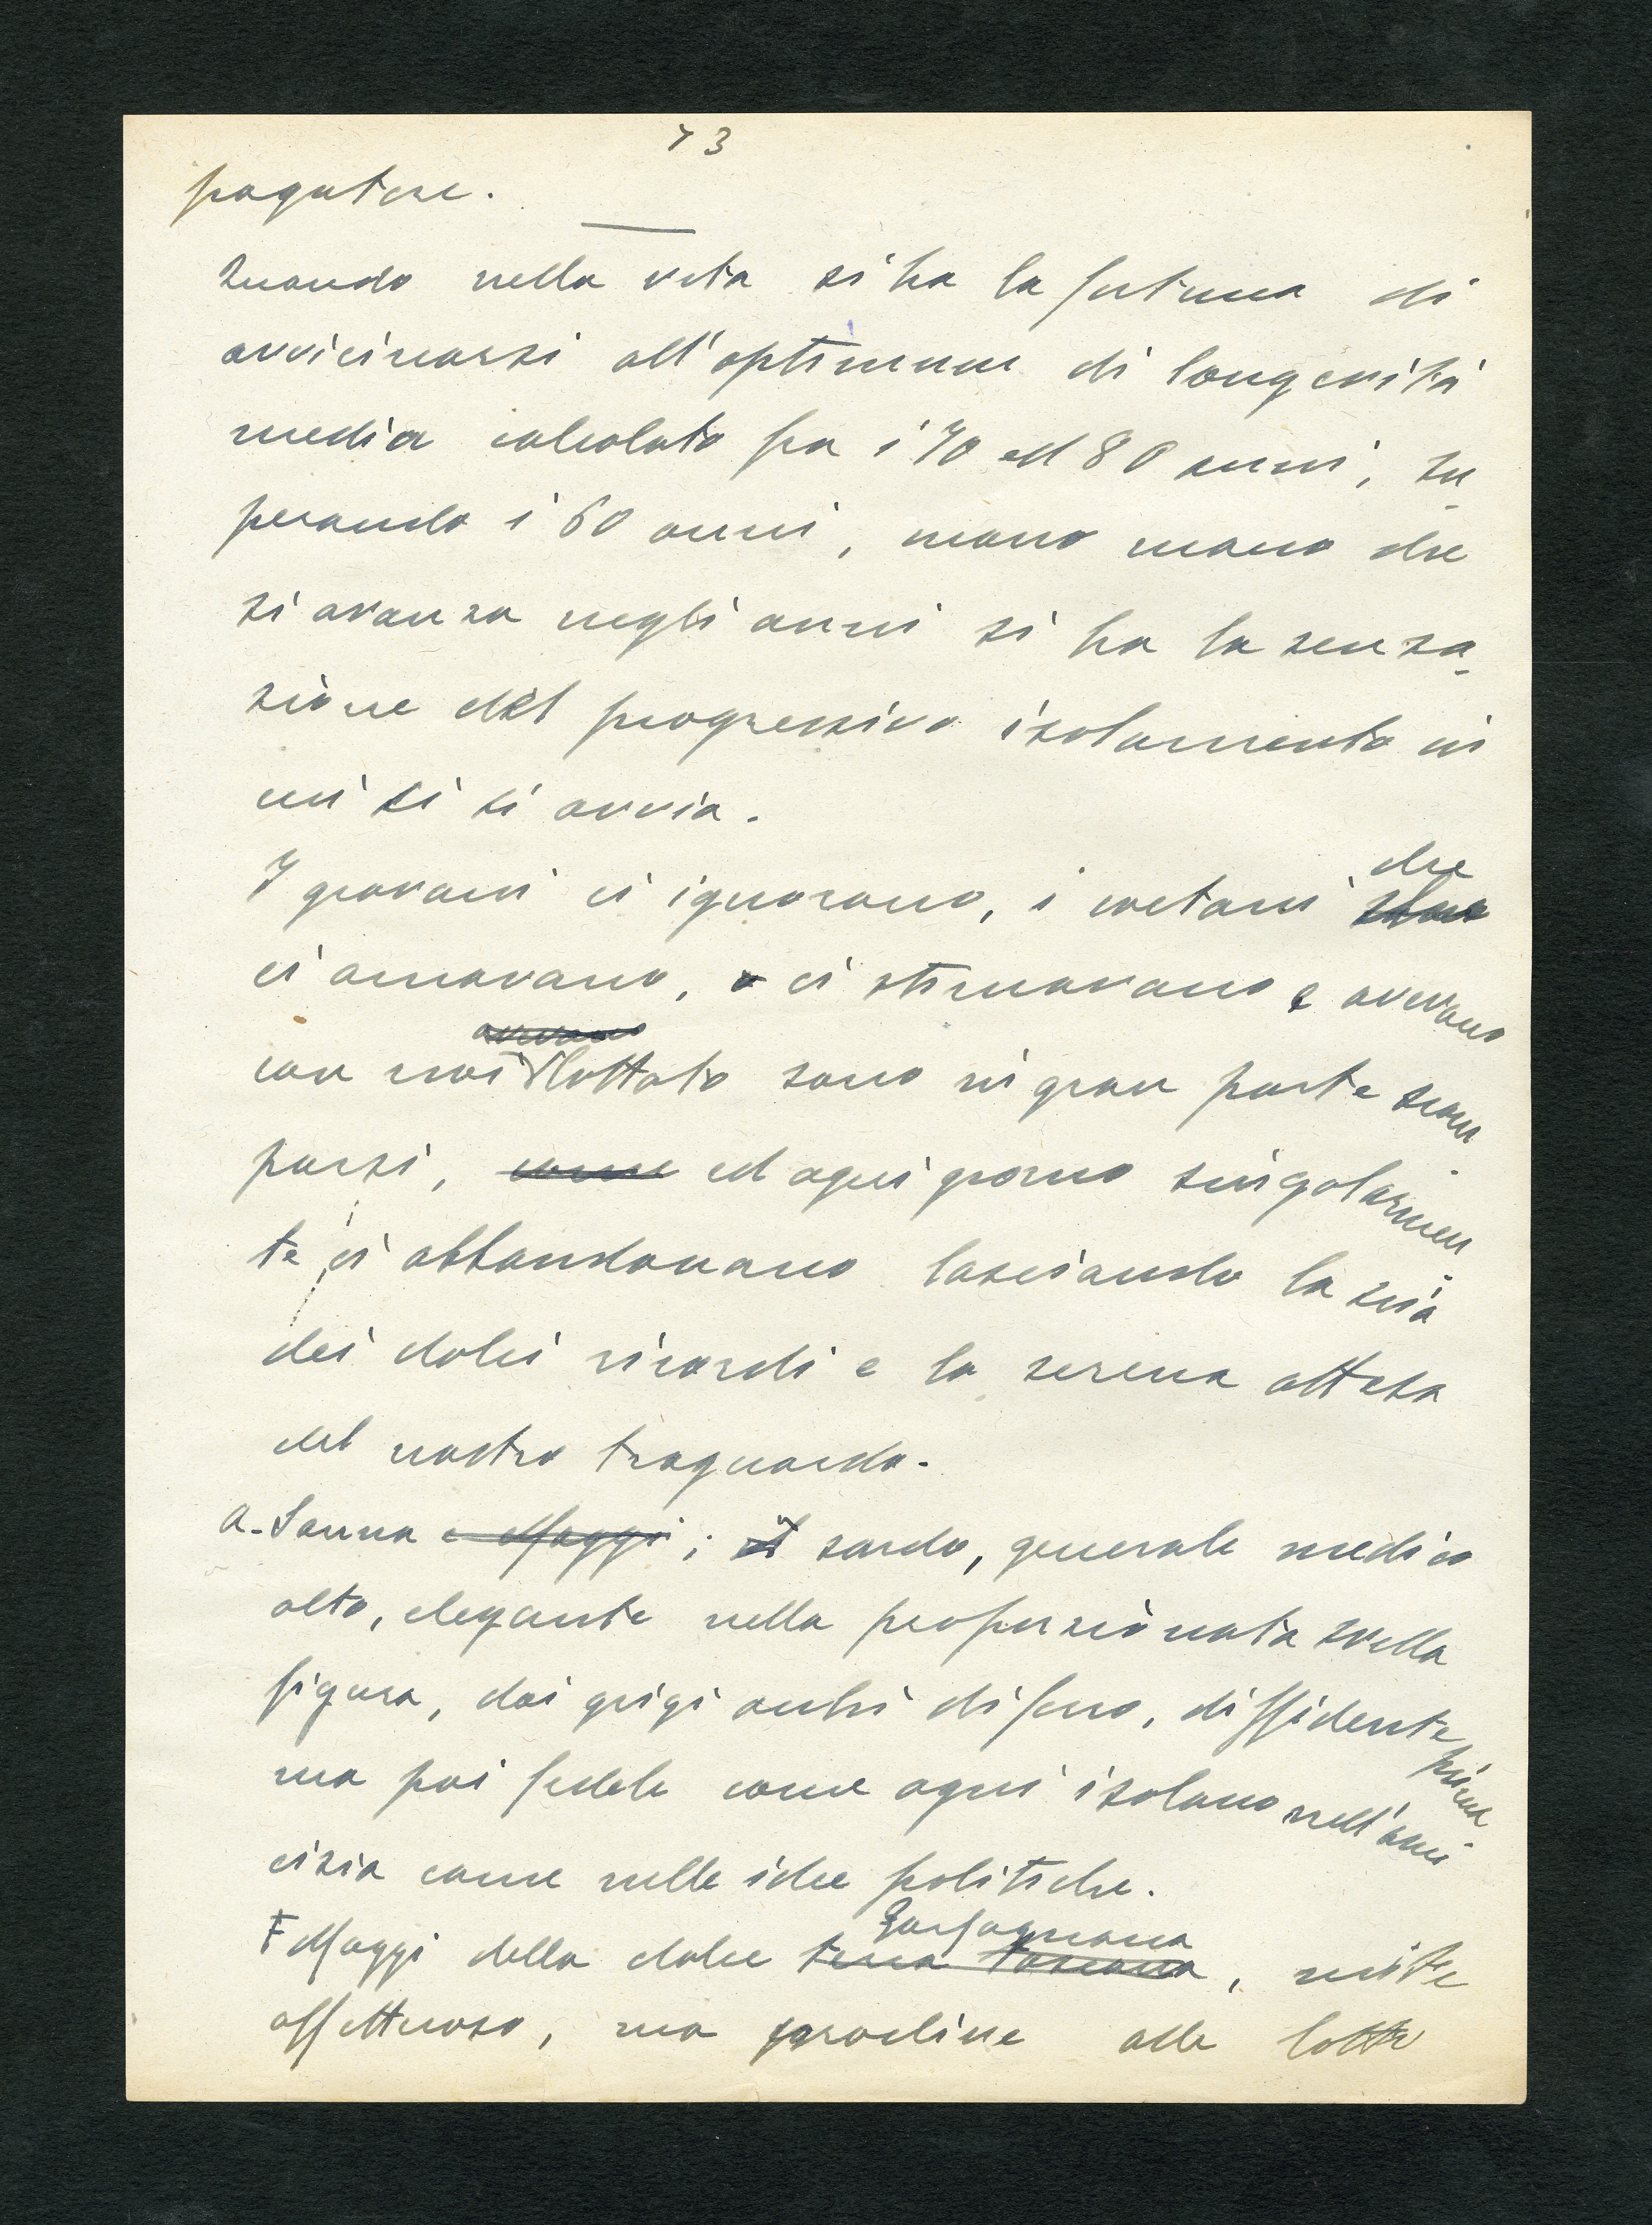 73
pagatore.
Quando nella vita si ha la fortuna di
avvicinarsi all'optimum di longevità
media calcolato fra i 70 ed 80 anni, su
perando i 60 anni, mano mano che
si avanza negli anni si ha la sensa-
zione del progressivo isolamento in
cui si si avvia.
I giovani ci ignorano, i coetani che
ci amavano, e ci stimavano e avevano
avevano
con noi lottato sono in gran parte scom-
parsi, come ed ogni giorno singolarmen-
te ci abbandonano lasciando la scia
dei dolci ricordi e la serena attesa
del nostro traguardo.
A. Sanna e Maggi; il sardo, generale medico
alto, elegante nella proporzionata snella
figura, dai grigi occhi di fuoco, diffidente prima
ma poi fedele come ogni isolano nell'ami-
cizia come nelle idee politiche.
Garfagnana
F Maggi della dolce terra toscana, mite
affettuoso, ma proclive alle lotte